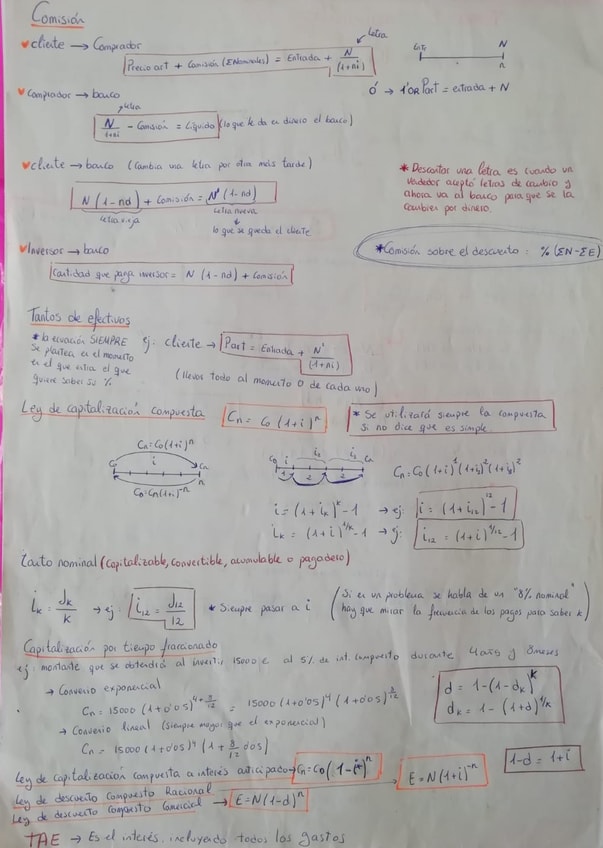 Comisión
♥ cliente → Comprador
Letra
Precio art + Comisión (ΣNominales) = Entrada + N/(1+ni)
N
n
0' → 1'OR Part = entrada + N
♥ Comprador → banco
letra
N/1+ni - Comisión = Líquido (lo que te da en dinero el banco)
♥ cliente → banco (cambia una letra por otra más tarde)
N (1-nd) + Comisión = N' (1-nd)
Letra vieja
Letra nueva
lo que se queda el cliente
* Descontar una letra es cuando un
vendedor aceptó letras de cambio y
ahora va al banco para que se la
cambien por dinero.
♥ Inversor → banco
Cantidad que paga inversor = N (1-nd) + Comisión
* Comisión sobre el descuento = % (ΣN-ΣE)
Tantos de efectivos
* la ecuación SIEMPRE
se plantea en el momento
en el que entra el que
quiere saber su %
ej: cliente → Part = Entrada + N'/(1+ni)
(llevas todo al momento 0 de cada uno)
Ley de capitalización compuesta Cn = Co (1+i)^n
* Se utilizará siempre la compuesta
si no dice que es simple.
Cn = Co(1+i)^n
Co i Cn
n
Co = Cn(1+i)^-n
Co i i₂ i₃ Cn
1 2 2
Cn = Co (1+i)^1 (1+i₂)^2 (1+i₃)^2
i = (1+i_k)^k - 1 → ej: i = (1+i₁₂)^12 - 1
i_k = (1+i)^1/k - 1 → ej: i₁₂ = (1+i)^1/12 - 1
Tanto nominal (capitalizable, convertible, acumulable o pagadero)
i_k = J_k/k → ej: i₁₂ = J₁₂/12 * Siempre pasar a i
(Si en un problema se habla de un "8% nominal"
hay que mirar la frecuencia de los pagos para saber k)
Capitalización por tiempo fraccionado
ej: montante que se obtendrá al invertir 15000 € al 5% de int. compuesto durante 4 años y 8 meses
→ Convenio exponencial
Cn = 15000 (1+0'05)^4+8/12 = 15000 (1+0'05)^4 (1+0'05)^8/12
→ Convenio lineal (siempre mayor que el exponencial)
Cn = 15000 (1+0'05)^4 (1 + 8/12 0'05)
d = 1-(1-d_k)^k
d_k = 1 - (1+d)^1/k
Ley de capitalización compuesta a interés anticipado → Cn = Co (1-i*)^-n
1-d = 1+i
Ley de descuento Compuesto Racional → E = N(1+i)^-n
Ley de descuento compuesto Comercial → E = N(1-d)^n
TAE → Es el interés, incluyendo todos los gastos